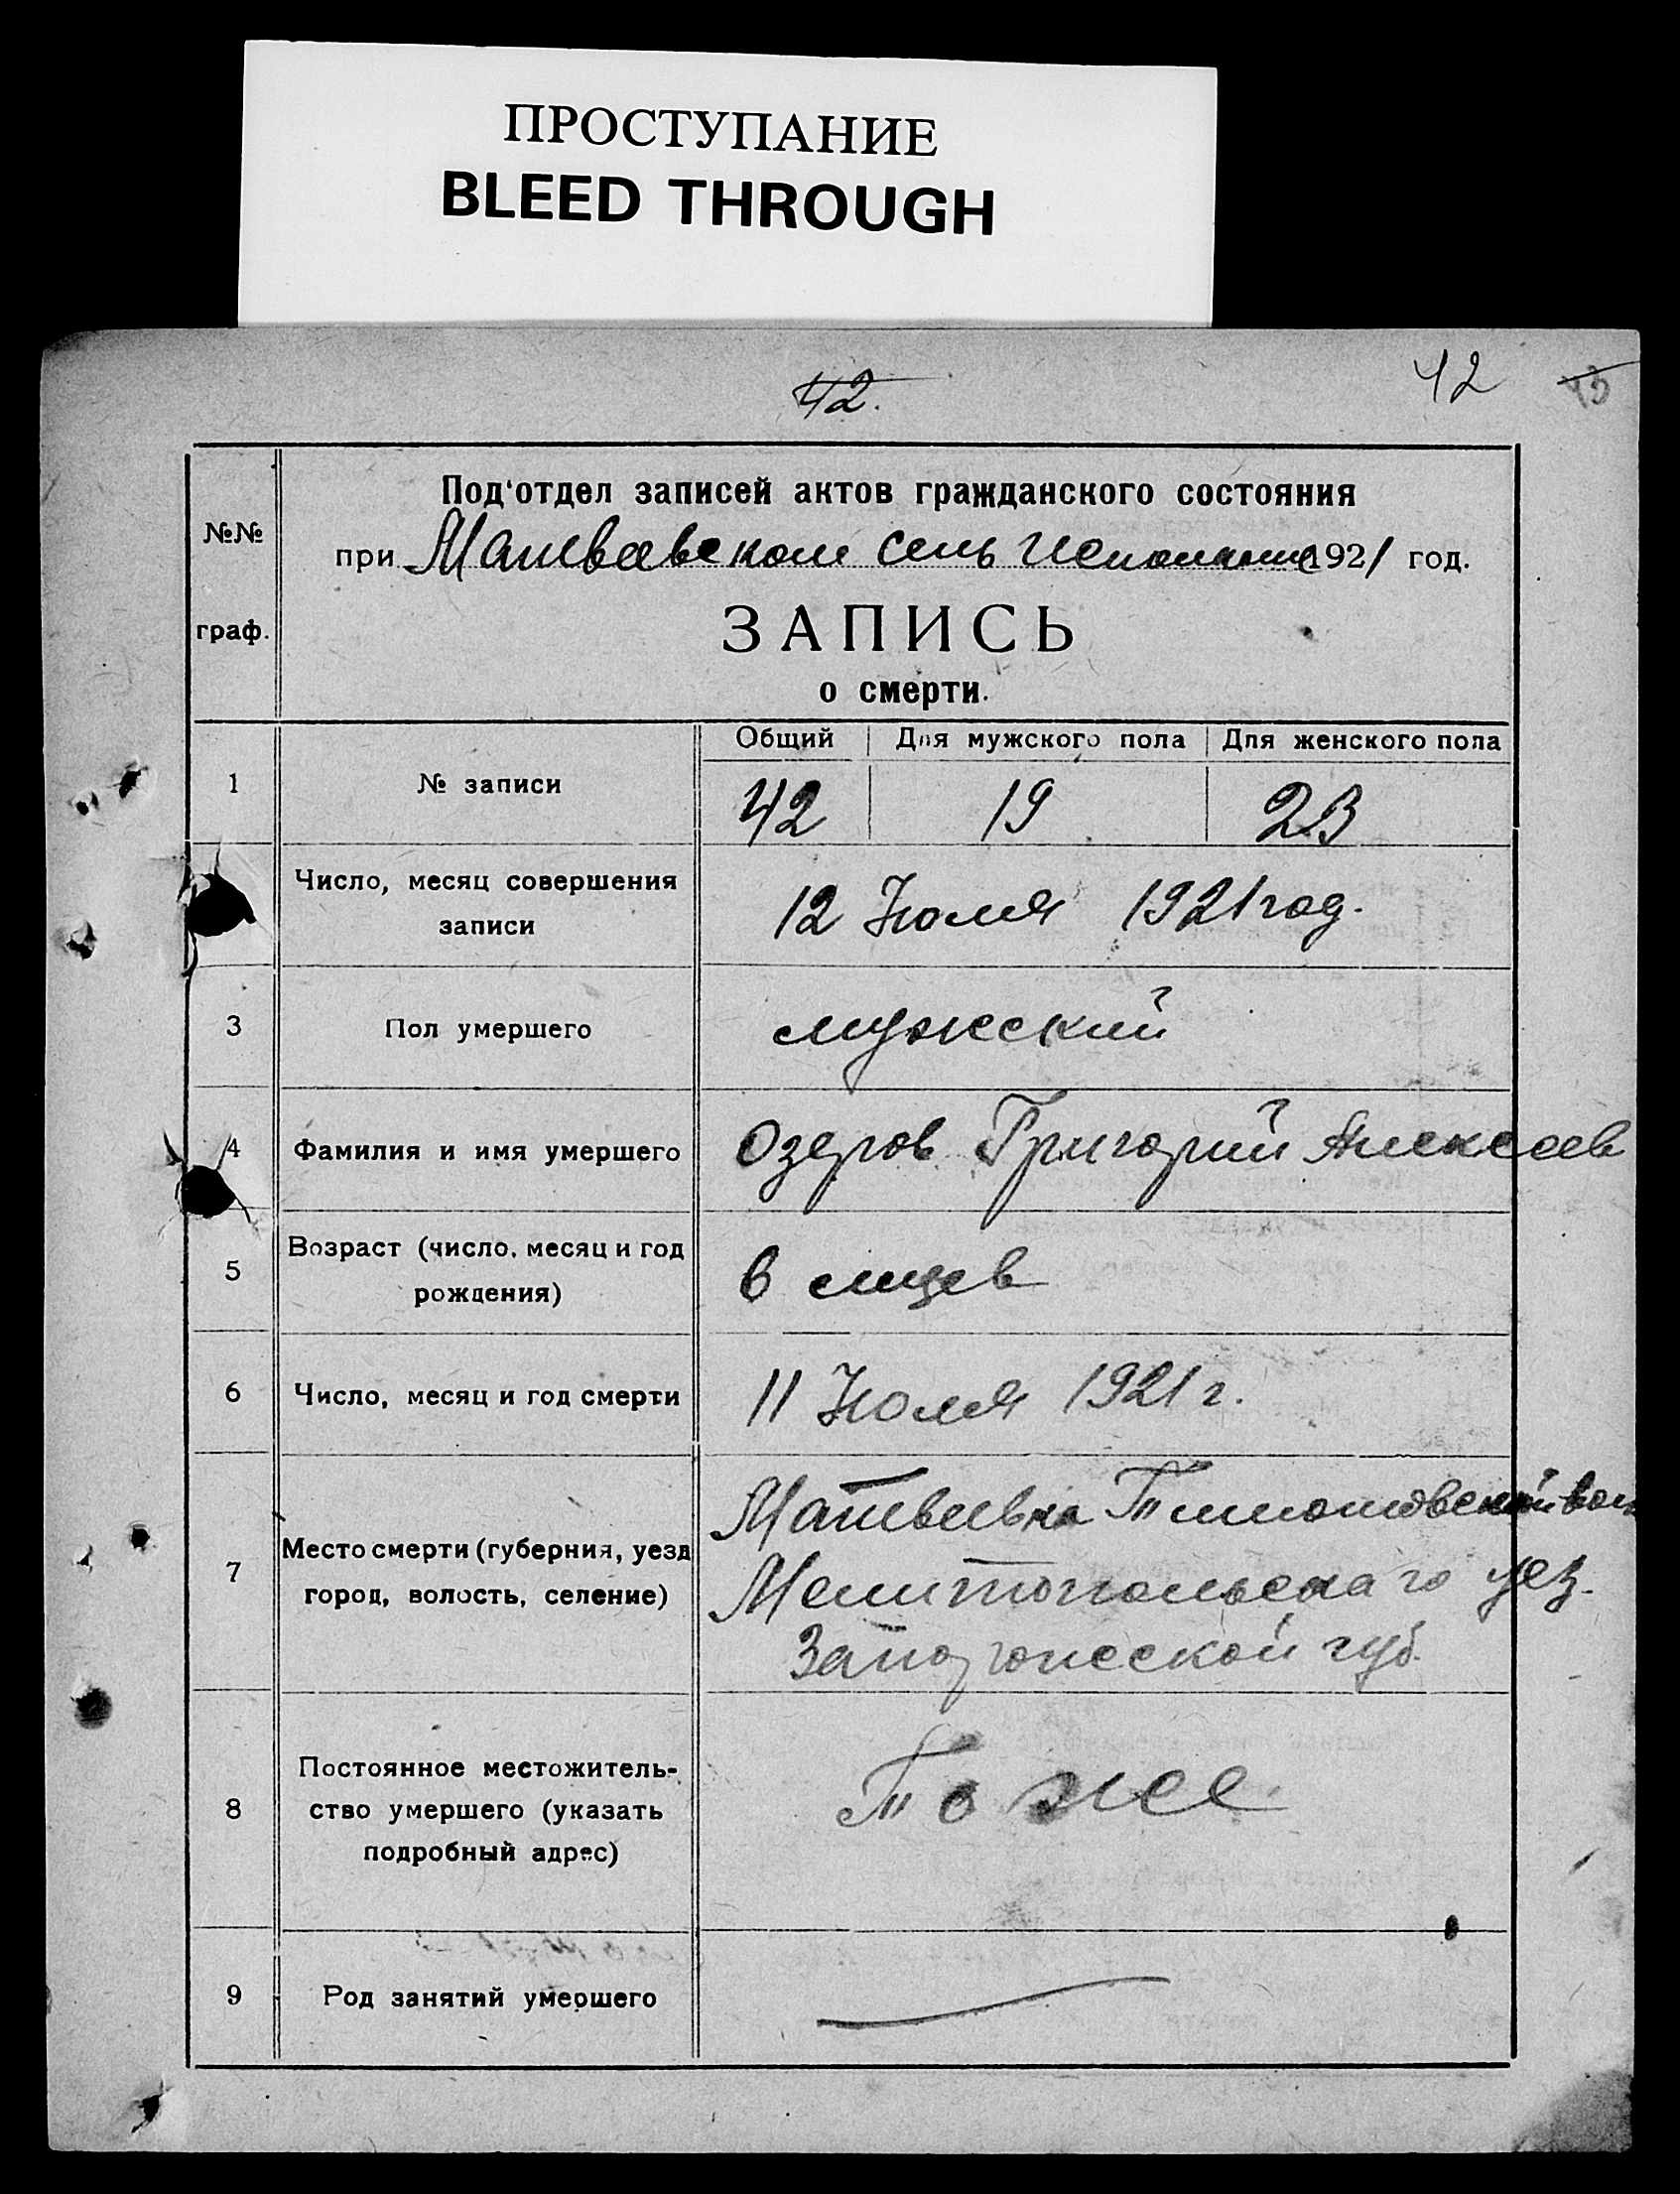 ПРОСТУПАНИЕ
BLEED THROUGH
42.
42
43
Под'отдел записей актов гражданского состояния
№№
при Матвеевском сель 1921 год.
граф.
ЗАПИСЬ
о смерти.
Общий Для мужского пола Для женского пола
1 № записи 42 19 23
Число, месяц совершения
записи
12 Июля 1921 год.
3 Пол умершего мужеский
4 Фамилия и имя умершего Озеров Григорий Алексеев
Возраст (число, месяц и год
5
рождения)
6 мцев
6 Число, месяц и год смерти 11 Июля 1921 г.
Матвеевка Тимошовской вол
Место смерти (губерния, уезд
7
город, волость, селение)
Мелитопольскаго уез.
Запорожсской губ.
Постоянное местожитель-
8 ство умершего (указать
подробный адрес)
То же
9 Род занятий умершего